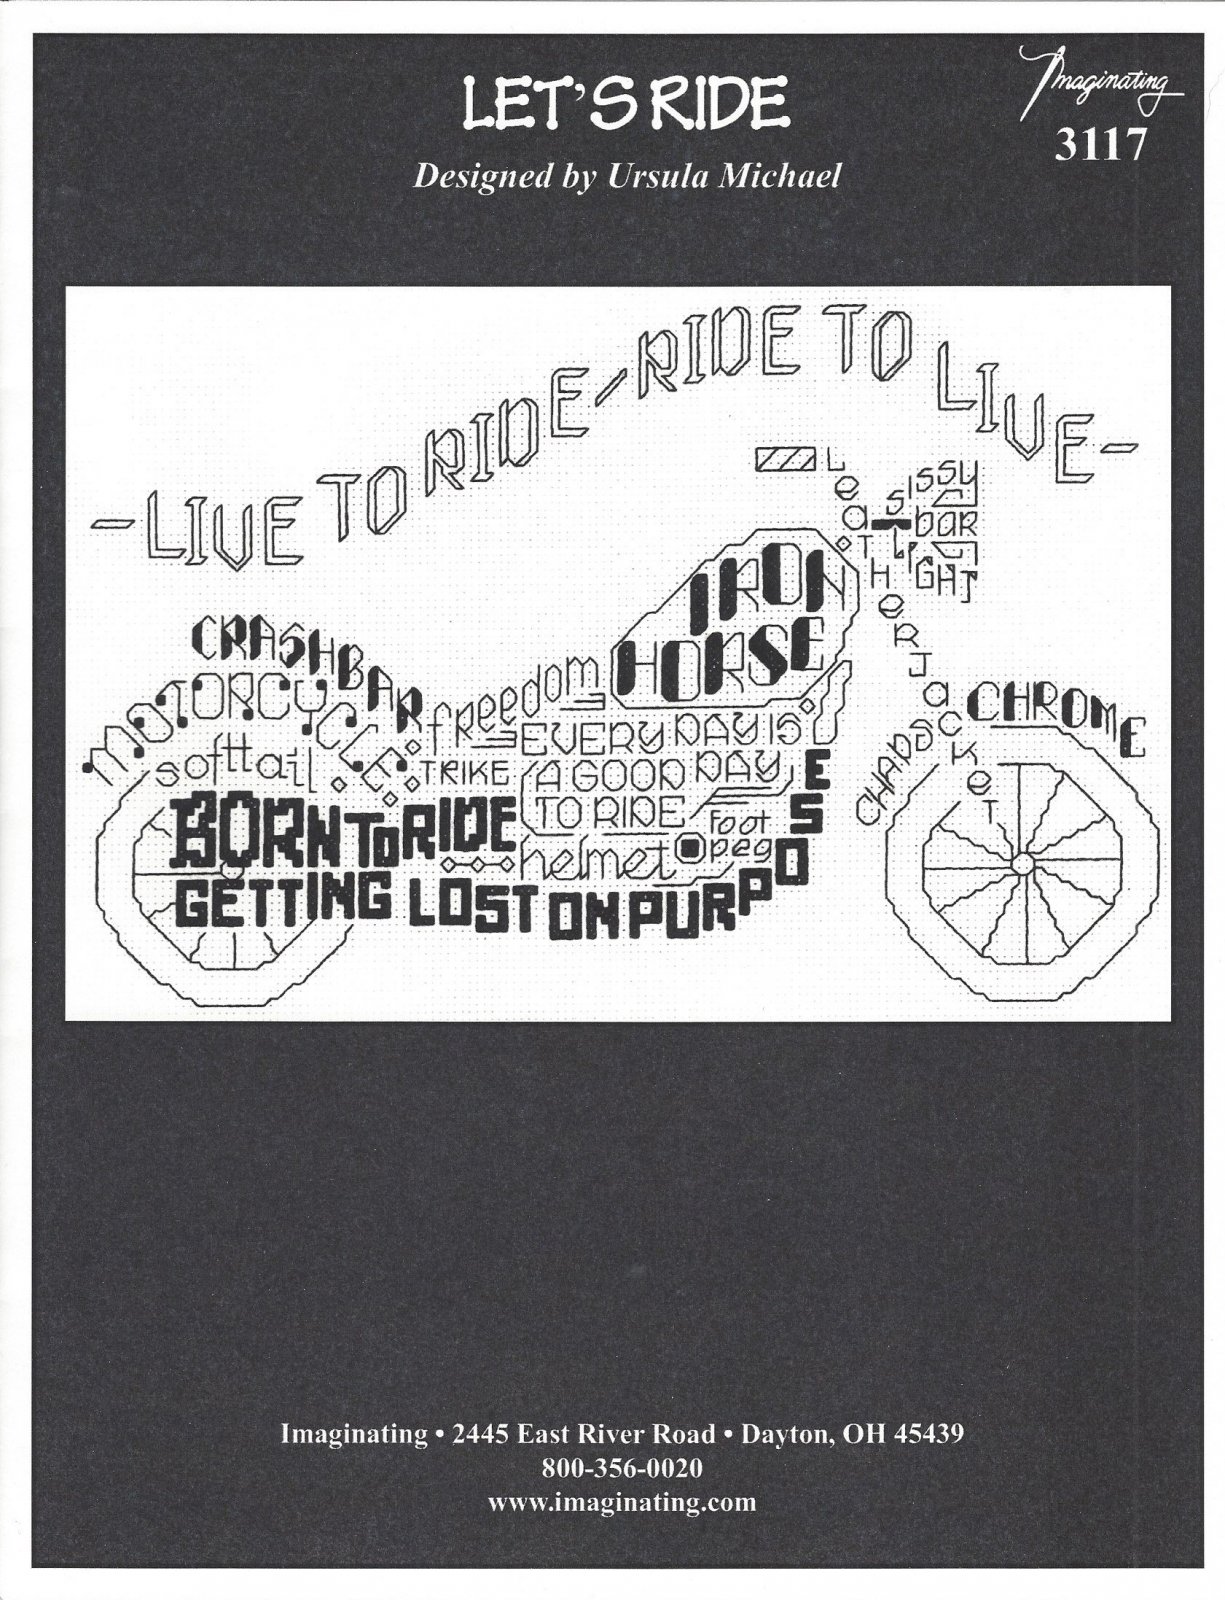 LET'S RIDE
Imaginating
3117
Designed by Ursula Michael
-LIVE TO RIDE-RIDE TO LIVE-
LeaTHeRJacKeT
SISSY
baR
LIGHT
IRON
HORSE
CRASHBAR
MOTORCYCLE
softtail
freedom
TRIKE
EVERY DAY IS
A GOOD DAY
TO RIDE
foot
peg
helmet
BORN TO RIDE
GETTING LOST ON PURPOSE
CHROME
Imaginating • 2445 East River Road • Dayton, OH 45439
800-356-0020
www.imaginating.com